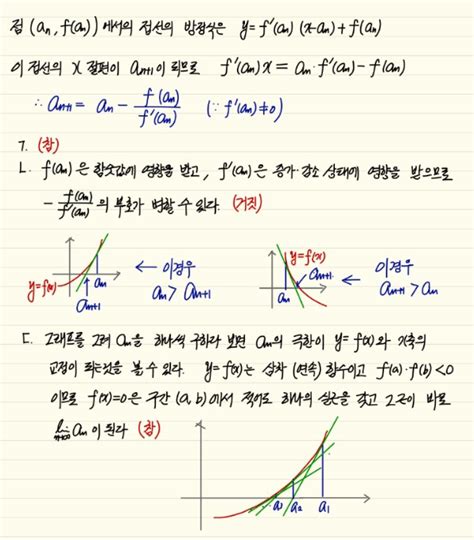 점 (aₙ, f(aₙ)) 에서의 접선의 방정식은 y = f'(aₙ)(x-aₙ)+f(aₙ)
이 접선의 x 절편이 aₙ₊₁이 되므로 f'(aₙ)x = aₙ·f'(aₙ) - f(aₙ)
∴ aₙ₊₁ = aₙ - f(aₙ)/f'(aₙ) (∵ f'(aₙ)≠0)
ㄱ. (참)
ㄴ. f(aₙ)은 함숫값에 영향을 받고, f'(aₙ)은 증가·감소 상태에 영향을 받으므로
- f(aₙ)/f'(aₙ) 의 부호가 변할 수 있다. (거짓)
y=f(x)
aₙ
aₙ₊₁
← 이경우
aₙ > aₙ₊₁
y=f(x)
aₙ₊₁
aₙ
← 이경우
aₙ₊₁ > aₙ
ㄷ. 그래프를 그려 aₙ을 하나씩 구하다 보면 aₙ의 극한이 y=f(x)와 x축의
교점이 되는것을 볼 수 있다. y=f(x)는 삼차 (연속) 함수이고 f(a)·f(b)<0
이므로 f(x)=0은 구간 (a, b)에서 적어도 하나의 실근을 갖고 그근이 바로
lim n→∞ aₙ 이 된다 (참)
a₂
a₁